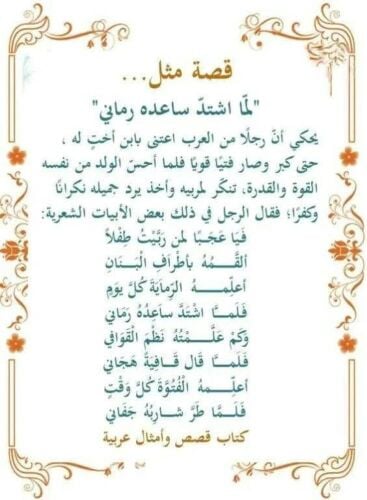 قصة مثل...
"لمّا اشتدّ ساعده رماني"
يحكي أنّ رجلًا من العرب اعتنى بابن أختٍ له ،
حتى كبر وصار فتيًا قويًا فلما أحسنَ الولد من نفسه
القوة والقدرة، تنكّر لمربيه وأخذ يرد جميله نكرانًا
وكفرًا؛ فقال الرجل في ذلك بعض الأبيات الشعرية:
فَيَا عَجَبًا لمن رَبَّيْتُ طِفْلاً
ألقَّمُهُ بأطْرَافِ الْبَنَانِ
أعلِّمهُ الرِّمايَةَ كُلَّ يَومٍ
فَلَمَّا اشْتَدَّ سَاعِدُهُ رَمَاني
وَكَمْ عَلَّمْتُهُ نَظْمَ الْقَوَافي
فَلَمَّا قَال قَافِيَةً هَجَاني
أعلِّمهُ الْفُتُوَّةَ كُلَّ وَقْتٍ
فَلَمَّا طَرَّ شارِبُهُ جَفَاني
كتاب قصص وأمثال عربية